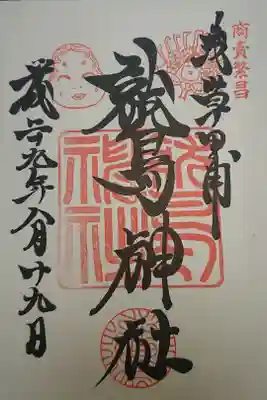 商賣繁昌
浅草田甫
鷲神社
平成二十九年八月廿九日